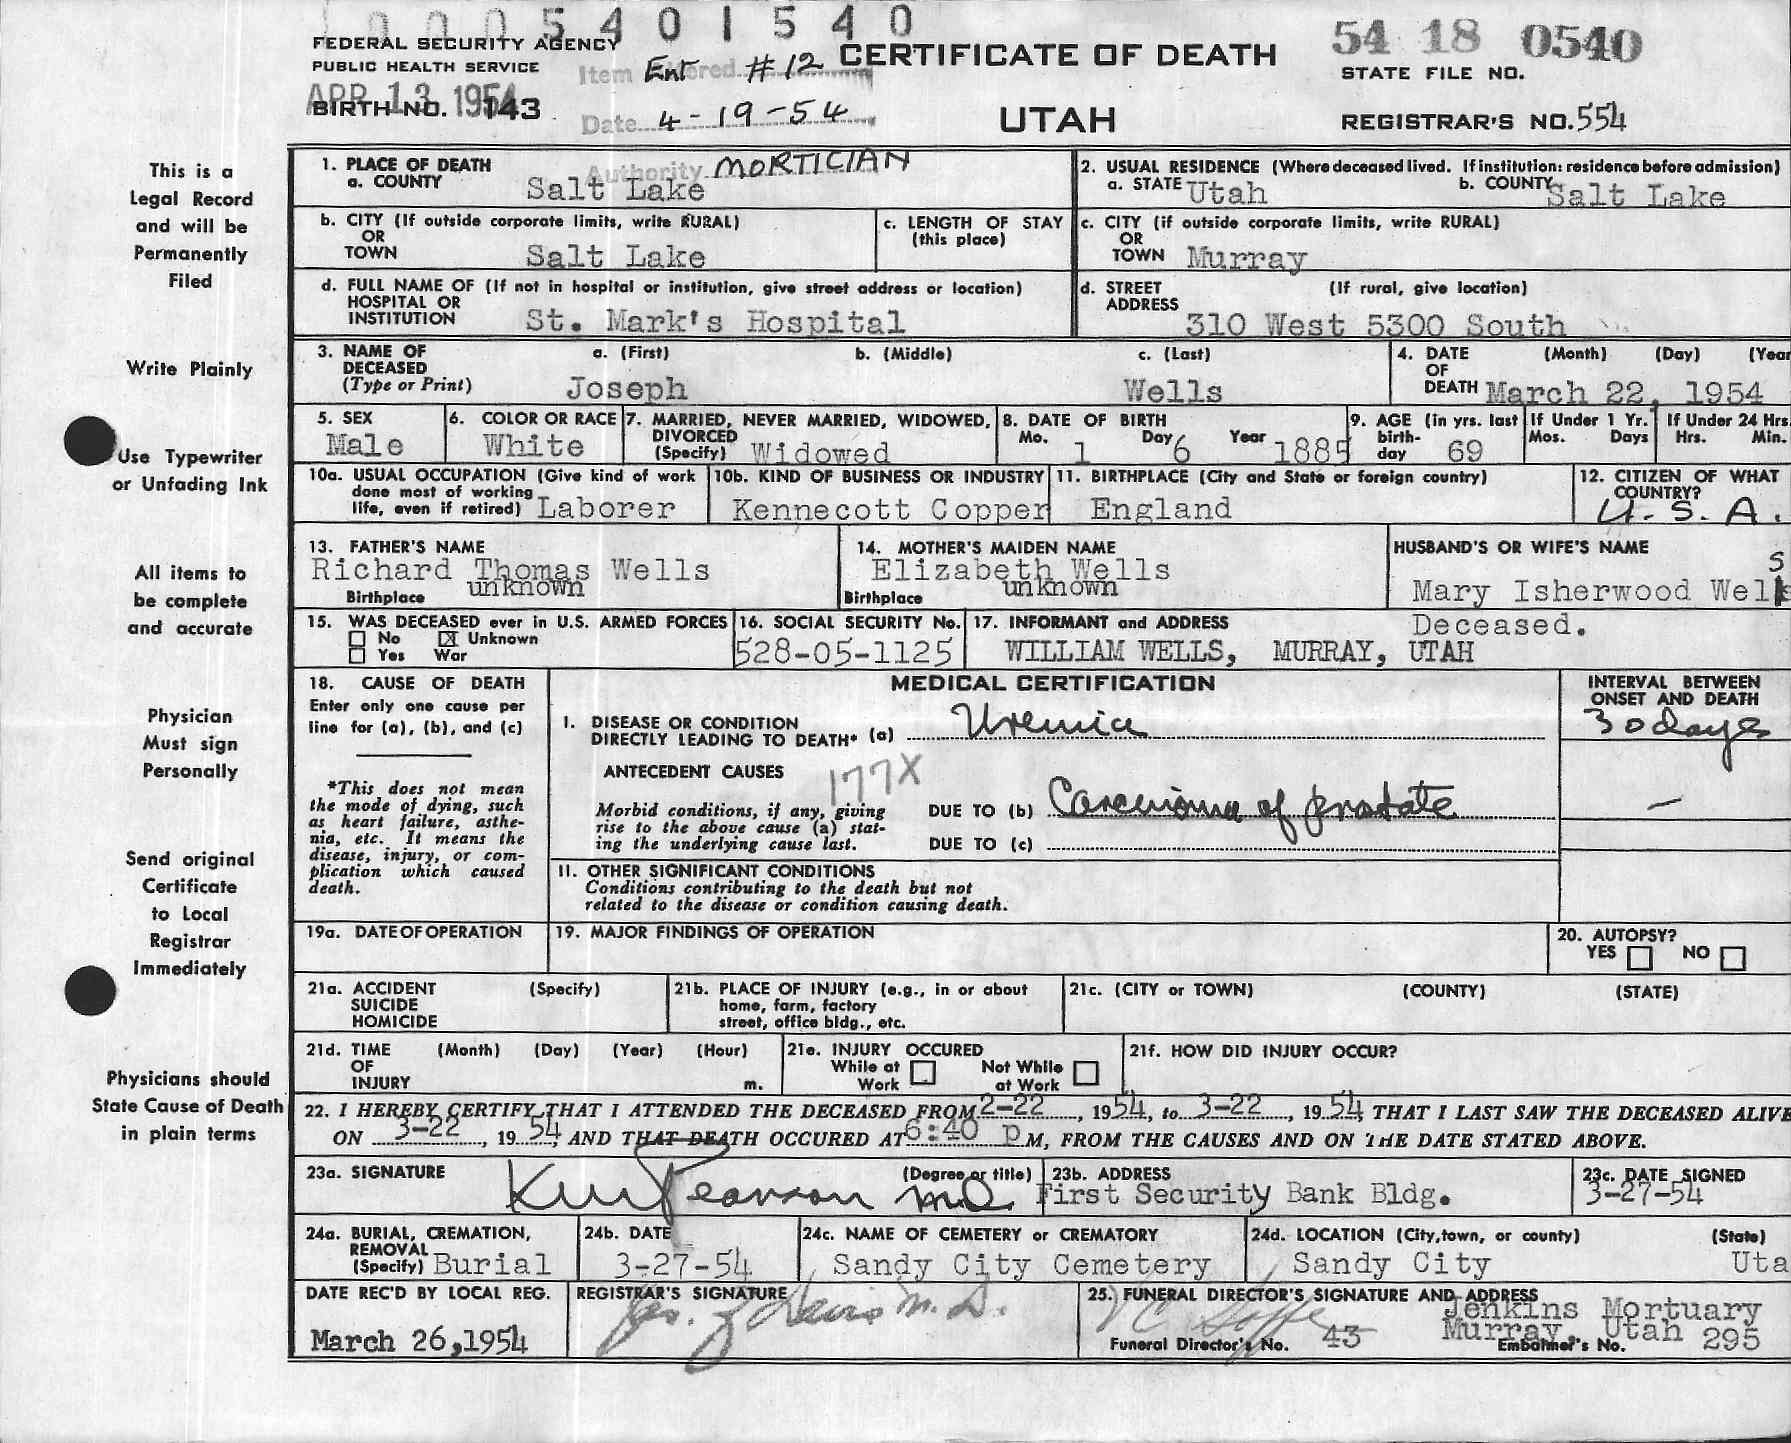 1000 5401540
54 18 0540
FEDERAL SECURITY AGENCY
PUBLIC HEALTH SERVICE
Item Entered #12
CERTIFICATE OF DEATH
STATE FILE NO.
APR 13 1954
BIRTH NO. 143
Date 4-19-54
UTAH
REGISTRAR'S NO. 554
Authority MORTICIAN
This is a
Legal Record
and will be
Permanently
Filed
Write Plainly
Use Typewriter
or Unfading Ink
All items to
be complete
and accurate
Physician
Must sign
Personally
Send original
Certificate
to Local
Registrar
Immediately
Physicians should
State Cause of Death
in plain terms
1. PLACE OF DEATH
a. COUNTY Salt Lake
2. USUAL RESIDENCE (Where deceased lived. If institution: residence before admission)
a. STATE Utah b. COUNTY Salt Lake
b. CITY (If outside corporate limits, write RURAL)
OR
TOWN Salt Lake
c. LENGTH OF STAY
(this place)
c. CITY (if outside corporate limits, write RURAL)
OR
TOWN Murray
d. FULL NAME OF (If not in hospital or institution, give street address or location)
HOSPITAL OR
INSTITUTION St. Mark's Hospital
d. STREET (If rural, give location)
ADDRESS
310 West 5300 South
3. NAME OF a. (First) b. (Middle) c. (Last)
DECEASED
(Type or Print) Joseph Wells
4. DATE (Month) (Day) (Year
OF
DEATH March 22, 1954
5. SEX
Male
6. COLOR OR RACE
White
7. MARRIED, NEVER MARRIED, WIDOWED,
DIVORCED
(Specify) Widowed
8. DATE OF BIRTH
Mo. 1 Day 6 Year 1885
9. AGE (in yrs. last
birth-
day 69
If Under 1 Yr.
Mos. Days
If Under 24 Hrs.
Hrs. Min.
10a. USUAL OCCUPATION (Give kind of work
done most of working
life, even if retired) Laborer
10b. KIND OF BUSINESS OR INDUSTRY
Kennecott Copper
11. BIRTHPLACE (City and State or foreign country)
England
12. CITIZEN OF WHAT
COUNTRY?
U.S.A.
13. FATHER'S NAME
Richard Thomas Wells
Birthplace unknown
14. MOTHER'S MAIDEN NAME
Elizabeth Wells
Birthplace unknown
HUSBAND'S OR WIFE'S NAME
Mary Isherwood Wells
Deceased.
15. WAS DECEASED ever in U.S. ARMED FORCES
No ☒ Unknown
Yes War
16. SOCIAL SECURITY No.
528-05-1125
17. INFORMANT and ADDRESS
WILLIAM WELLS, MURRAY, UTAH
18. CAUSE OF DEATH
Enter only one cause per
line for (a), (b), and (c)
*This does not mean
the mode of dying, such
as heart failure, asthe-
nia, etc. It means the
disease, injury, or com-
plication which caused
death.
MEDICAL CERTIFICATION
INTERVAL BETWEEN
ONSET AND DEATH
I. DISEASE OR CONDITION
DIRECTLY LEADING TO DEATH* (a) Uremia
30 days
ANTECEDENT CAUSES 177X
Morbid conditions, if any, giving
rise to the above cause (a) stat-
ing the underlying cause last.
DUE TO (b) Carcinoma of prostate —
DUE TO (c)
II. OTHER SIGNIFICANT CONDITIONS
Conditions contributing to the death but not
related to the disease or condition causing death.
19a. DATE OF OPERATION
19. MAJOR FINDINGS OF OPERATION
20. AUTOPSY?
YES NO
21a. ACCIDENT (Specify)
SUICIDE
HOMICIDE
21b. PLACE OF INJURY (e.g., in or about
home, farm, factory
street, office bldg., etc.
21c. (CITY or TOWN) (COUNTY) (STATE)
21d. TIME (Month) (Day) (Year) (Hour)
OF
INJURY m.
21e. INJURY OCCURED
While at Not While
Work at Work
21f. HOW DID INJURY OCCUR?
22. I HEREBY CERTIFY THAT I ATTENDED THE DECEASED FROM 2-22, 1954, to 3-22, 1954, THAT I LAST SAW THE DECEASED ALIVE
ON 3-22, 1954, AND THAT DEATH OCCURED AT 6:40 p M, FROM THE CAUSES AND ON THE DATE STATED ABOVE.
23a. SIGNATURE (Degree or title)
Pearson MD
23b. ADDRESS
First Security Bank Bldg.
23c. DATE SIGNED
3-27-54
24a. BURIAL, CREMATION,
REMOVAL
(Specify) Burial
24b. DATE
3-27-54
24c. NAME OF CEMETERY or CREMATORY
Sandy City Cemetery
24d. LOCATION (City, town, or county) (State)
Sandy City Uta
DATE REC'D BY LOCAL REG.
March 26, 1954
REGISTRAR'S SIGNATURE
Davis M.D.
25. FUNERAL DIRECTOR'S SIGNATURE AND ADDRESS
Jenkins Mortuary
Murray, Utah
Funeral Director's No. 43 Embalmer's No. 295